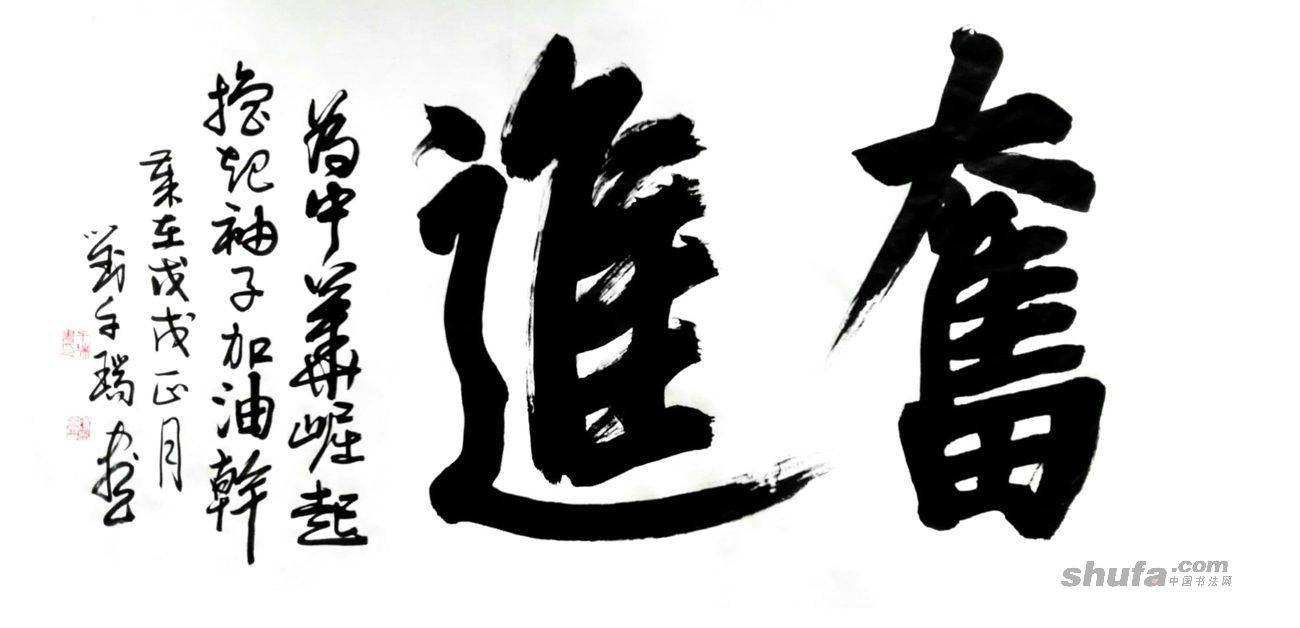 奮進
為中華崛起
擼起袖子加油幹
歲在戊戌正月
劉千瑞書
shufa.com
中国书法网